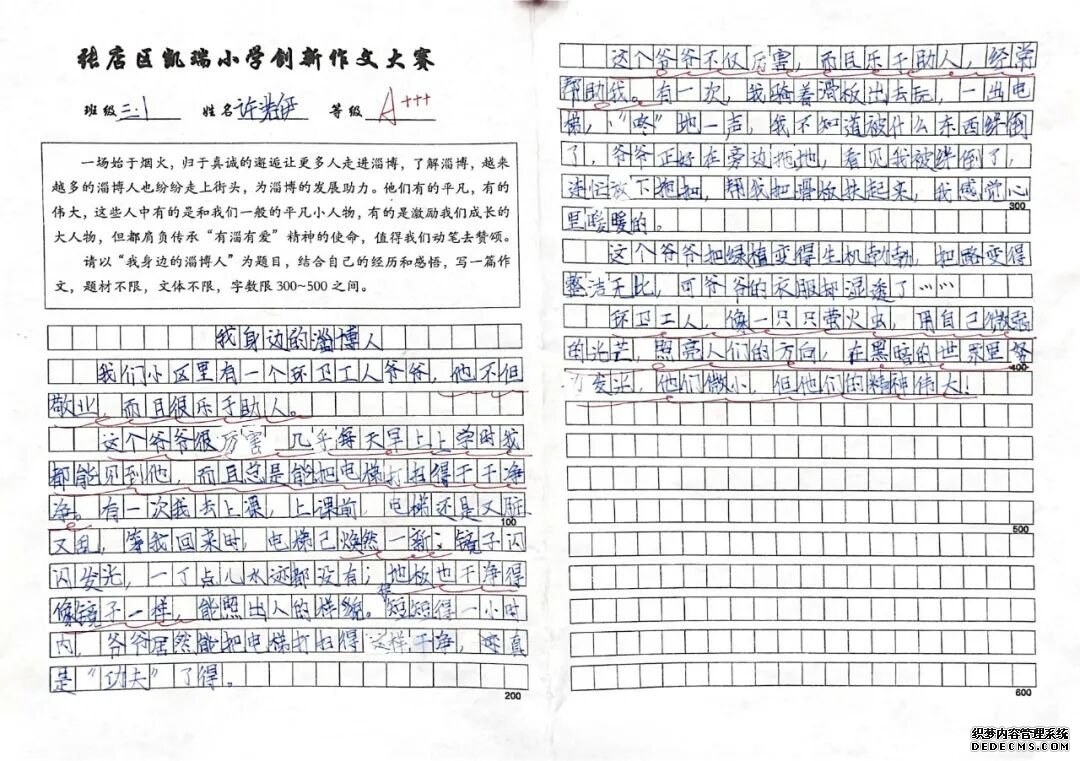 张店区凯瑞小学创新作文大赛
班级 三.1 姓名 许 等级 A+++
一场始于烟火,归于真诚的邂逅让更多人走进淄博,了解淄博,越来
越多的淄博人也纷纷走上街头,为淄博的发展助力。他们有的平凡,有的
伟大,这些人中有的是和我们一般的平凡小人物,有的是激励我们成长的
大人物,但都肩负传承“有淄有爱”精神的使命,值得我们动笔去赞颂。
请以“我身边的淄博人”为题目,结合自己的经历和感悟,写一篇作
文,题材不限,文体不限,字数限300~500之间。
我身边的淄博人
我们小区里有一个环卫工人爷爷,他不但
敬业,而且很乐于助人。
这个爷爷很厉害 几乎每天早上上学时我
都能见到他,而且总是能把电梯打扫得干干净
净。有一次我去上课,上课前,电梯还是又脏
100
又乱,等我回来时,电梯已焕然一新;镜子闪
闪发光,一丁点儿水迹都没有;地板也干净得
像镜子一样,能照出人的样貌。短短得一小时
内,爷爷居然能把电梯打扫得这样干净,真
是“功夫”了得。
200
这个爷爷不仅厉害,而且乐于助人,经常
帮助我。有一次,我骑着滑板出去玩,一出电
梯,“咚”地一声,我不知道被什么东西绊倒
了,爷爷正好在旁边拖地,看见我被绊倒了,
连忙放下拖把,帮我把滑板扶起来,我感觉心
300
里暖暖的。
这个爷爷把绿植变得生机勃勃,把路变得
整洁无比,可爷爷的衣服却湿透了……
环卫工人,像一只只萤火虫,用自己微弱
的光芒,照亮人们的方向,在黑暗的世界里努
400
力发光,他们微小,但他们的精神伟大!
500
600
织梦内容管理系统
DEDECMS.COM